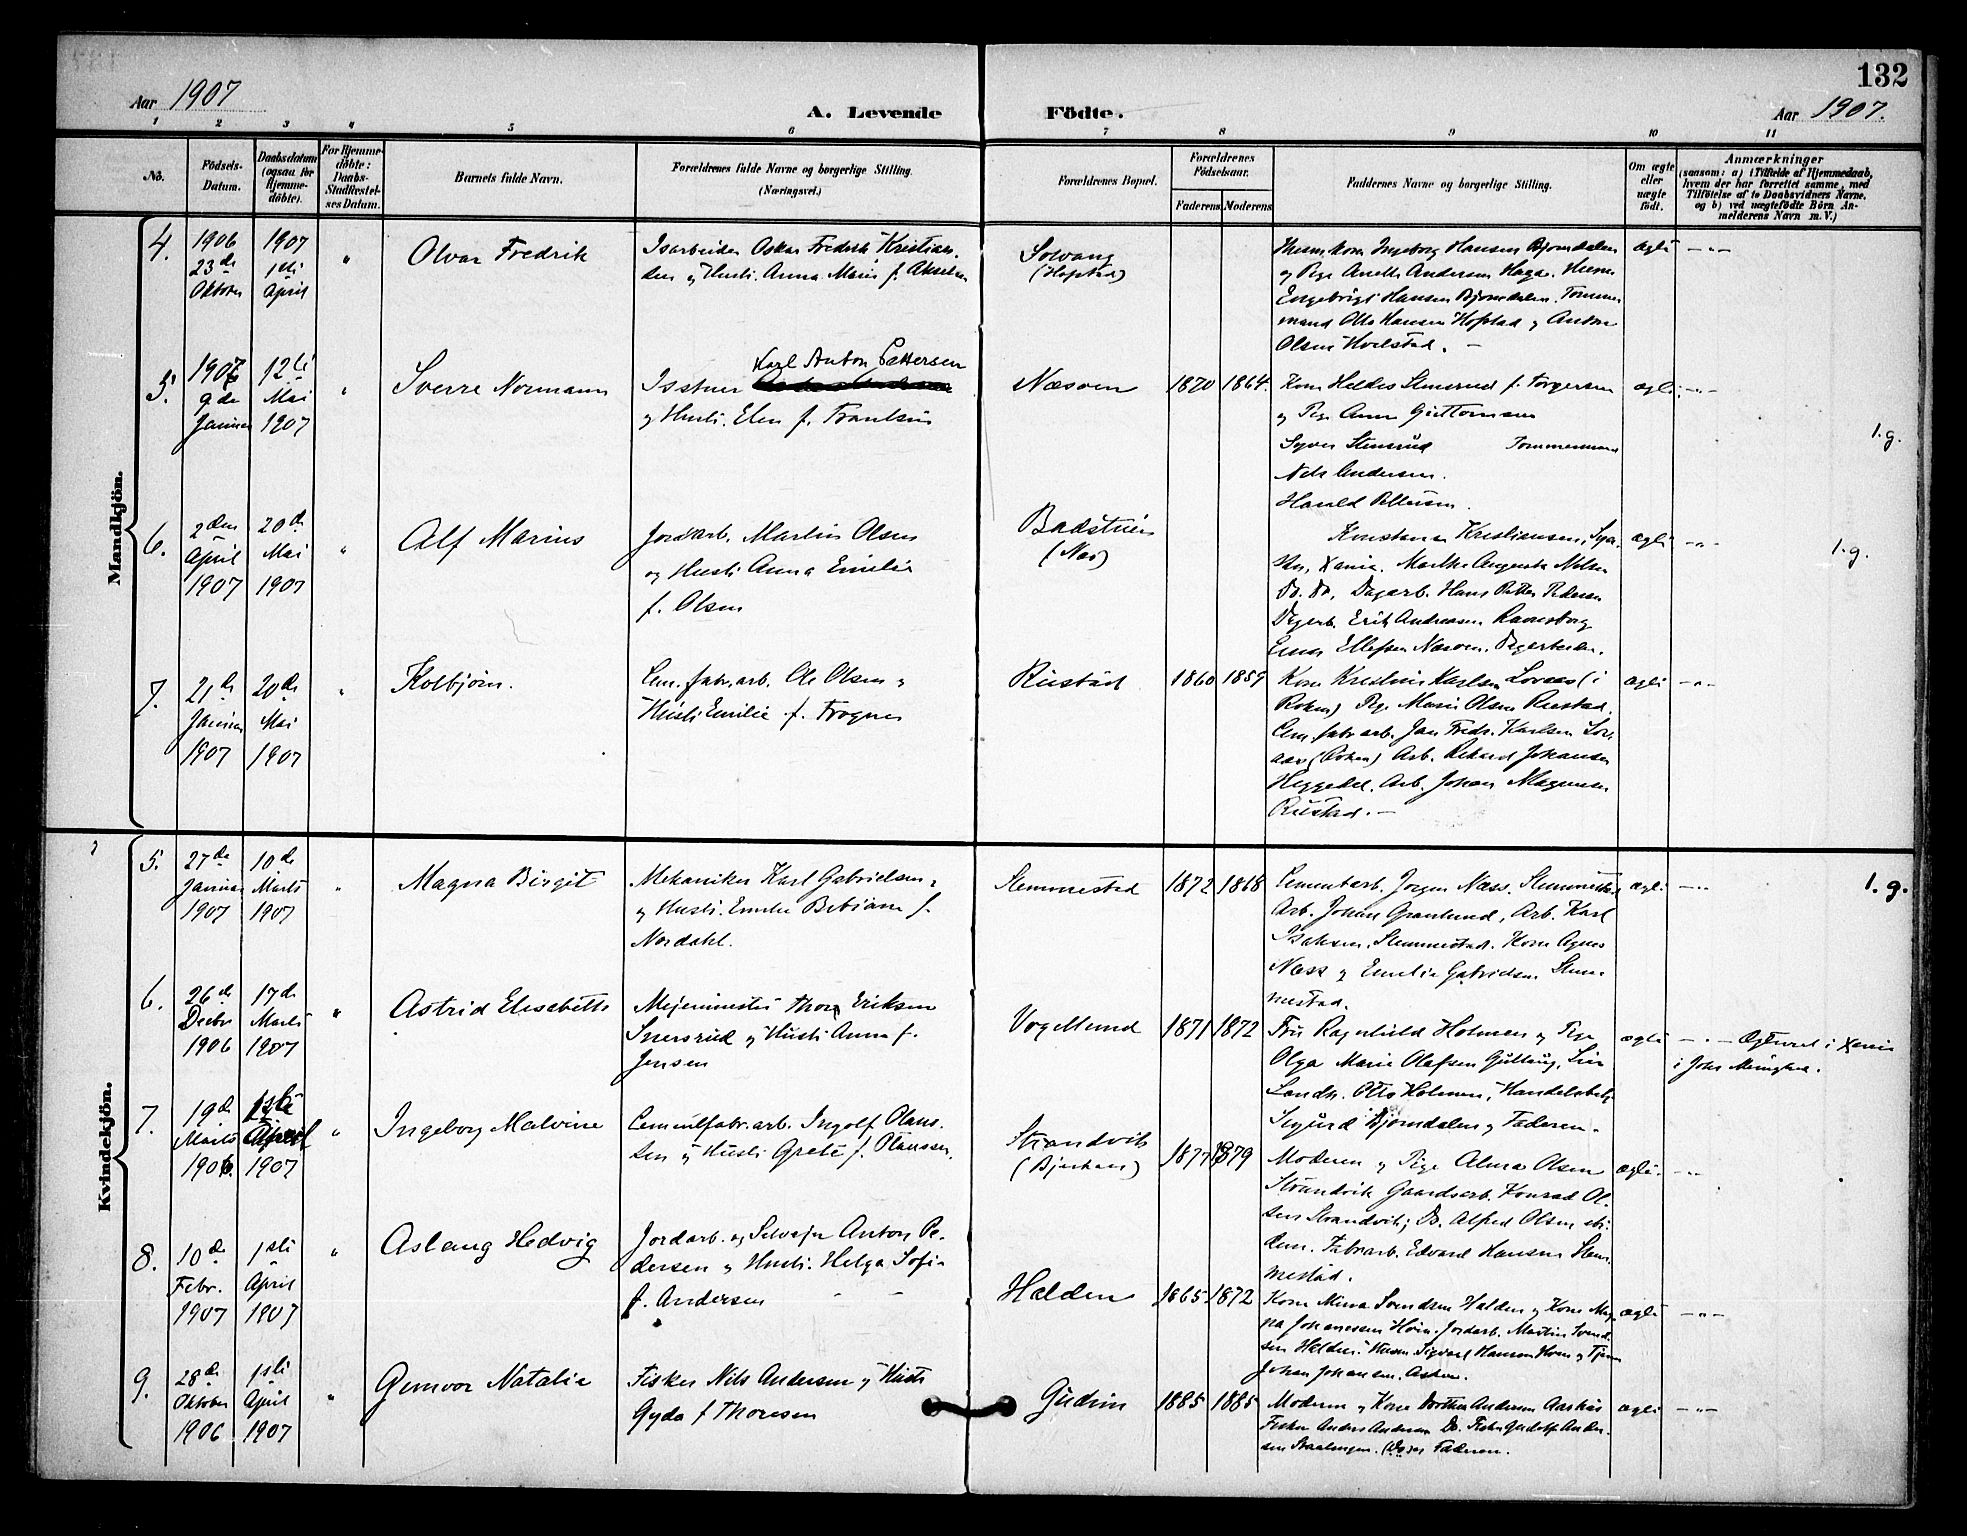 132
Aar 1907
A. Levende
Födte.
Aar 1907.
1 2 3 4 5 6 7 8 9 10 11
No.
Födsels-
Datum.
Daabsdatum
(ogsaa for
Hjemme-
döbte).
For Hjemme-
döbte:
Daabs-
Stadfæstel-
ses Datum.
Barnets fulde Navn.
Forældrenes fulde Navne og borgerlige Stilling.
(Næringsvei.)
Forældrenes Bopæl.
Forældrenes
Födselsaar.
Faderens Moderens
Faddernes Navne og borgerlige Stilling.
Om ægte
eller
uægte
födt.
Anmærkninger
(saasom: a) i Tilfælde af Hjemmedaab,
hvem der har forrettet samme, med
Tilföielse af to Daabsvidners Navne,
og b) ved uægtefödte Börn An-
melderens Navn m. V.)
Mandkjön.
4.
1906
23de
Oktober
1907
1ste
April
"
Olvar Fredrik
Isarbeider Oskar Fredrik Kristian-
sen og Hustr. Anna Marie f. Akselsen
Solvang
(Hofstad)
Ingeborg Hansen Bjørndalen
og Pige Anette Andersen Haga.
Engebrigt Hansen Bjørndalen. Tømmer
mand Otto Hansen Hofstad og Anton
Olsen Hvelstad. -
ægte
- " -
5.
1907
9de
Januar
12te
Mai
1907
"
Sverre Normann
Karl Anton Pettersen
og Hustr. Elen f.
Næsøen
1870
1864.
Kone Stensrud f. Torgersen
og Pige Anna Guttormsen
Syver Stensrud Tømmermand
Nils Andersen.
Harald Pettersen.
ægte
- " -
1. g.
6.
2den
April
1907
20de
Mai
1907
"
Alf Marius
Jordarb. Martin Olsen
og Hustr. Anna Emilie
f. Olsen
Badstuen
(Næs)
Konstanse Kristiansen,
Marthe Augusta Nilsen
Do. Do. Dagarb. Hans Petter Pedersen
Dagarb. Erik Andreasen Ramsborg
Ellefsen Næsøen. Dagarbeider.
ægte
- " -
1. g.
7.
21de
Januar
1907
20de
Mai
1907
"
Kolbjørn.
Cem.fabr.arb. Ole Olsen og
Hustr. Emilie f. Frogner
Rustad
1860
1859
Kone Kristine Karlsen Løvaas (i
Røken) Pige Marie Olsen Rustad.
Cem.fabr.arb. Jan Fredr. Karlsen Løv-
aas (Røken) Arb. Rikard Johansen
Heggedal. Arb. Johan Magnusen
Rustad. -
ægte
- " -
Kvindekjön.
5.
27de
Januar
1907
10de
Marts
1907
"
Magna Birgit
Mekaniker Karl Gabrielsen
og Hustr. Emilie Bebiane f.
Nordahl.
Slemmestad
1872
1868
Cementarb. Jørgen Næss, Slemmestad
Arb. Johan Granlund, Arb. Karl
Isaksen, Slemmestad. Kone Agnes
Næss og Emilie Gabrielsen. Slem-
mestad.
ægte
- " -
1. g.
6.
26de
Decbr
1906
17de
Marts
1907
"
Astrid Elisabeth
Meierimester Thor Eriksen
Snersrud og Hustr. Anna f.
Jensen
Vogellund
1871
1872
Fru Ragnhild Holmen og Pige
Olga Marie Olafsen Gullaug, Lier
Landh. Otto Holmen, Handelsbetj.
Sigurd Bjørndalen og Faderen.
ægte
- " -
7.
19de
Marts
1906.
1ste
April
1907
"
Ingeborg Malvine
Cementfabr.arb. Ingolf Olaus-
sen og Hustr. Grete f. Olaussen.
Strandvik
1877
1879
Moderen og Pige Alma Olsen
Strandvik Gaardsarb. Konrad Ol-
sen Strandvik, Do. Alfred Olsen sti-
dem. Fabrarb. Edvard Hansen Slem-
mestad.
ægte
- " -
8.
10de
Febr.
1907
1ste
April
1907
"
Aslaug Hedvig
Jordarb. og Selveier Anton Pe-
dersen og Hustr. Helga Sofie
f. Andersen
Halden
1865
1872
Kone Mina Svendsen Halden og Kone Mag-
na Johannessen Jordarb. Martin Svend-
sen Halden. Sigvard Hansen
Johan Johansen, Asker.
ægte
- " -
9.
28de
Oktober
1906
1ste
April
1907
"
Gunvor Natalie
Fisker Nils Andersen og Hustr.
Gyda f Thoresen
Gudrun
1885
1885
Moderen og Kone Dorthea Andersen Aarhus
Fisker Anders Andersen Do. Fisker Gudolf Ander-
sen og Faderen.
ægte
- " -